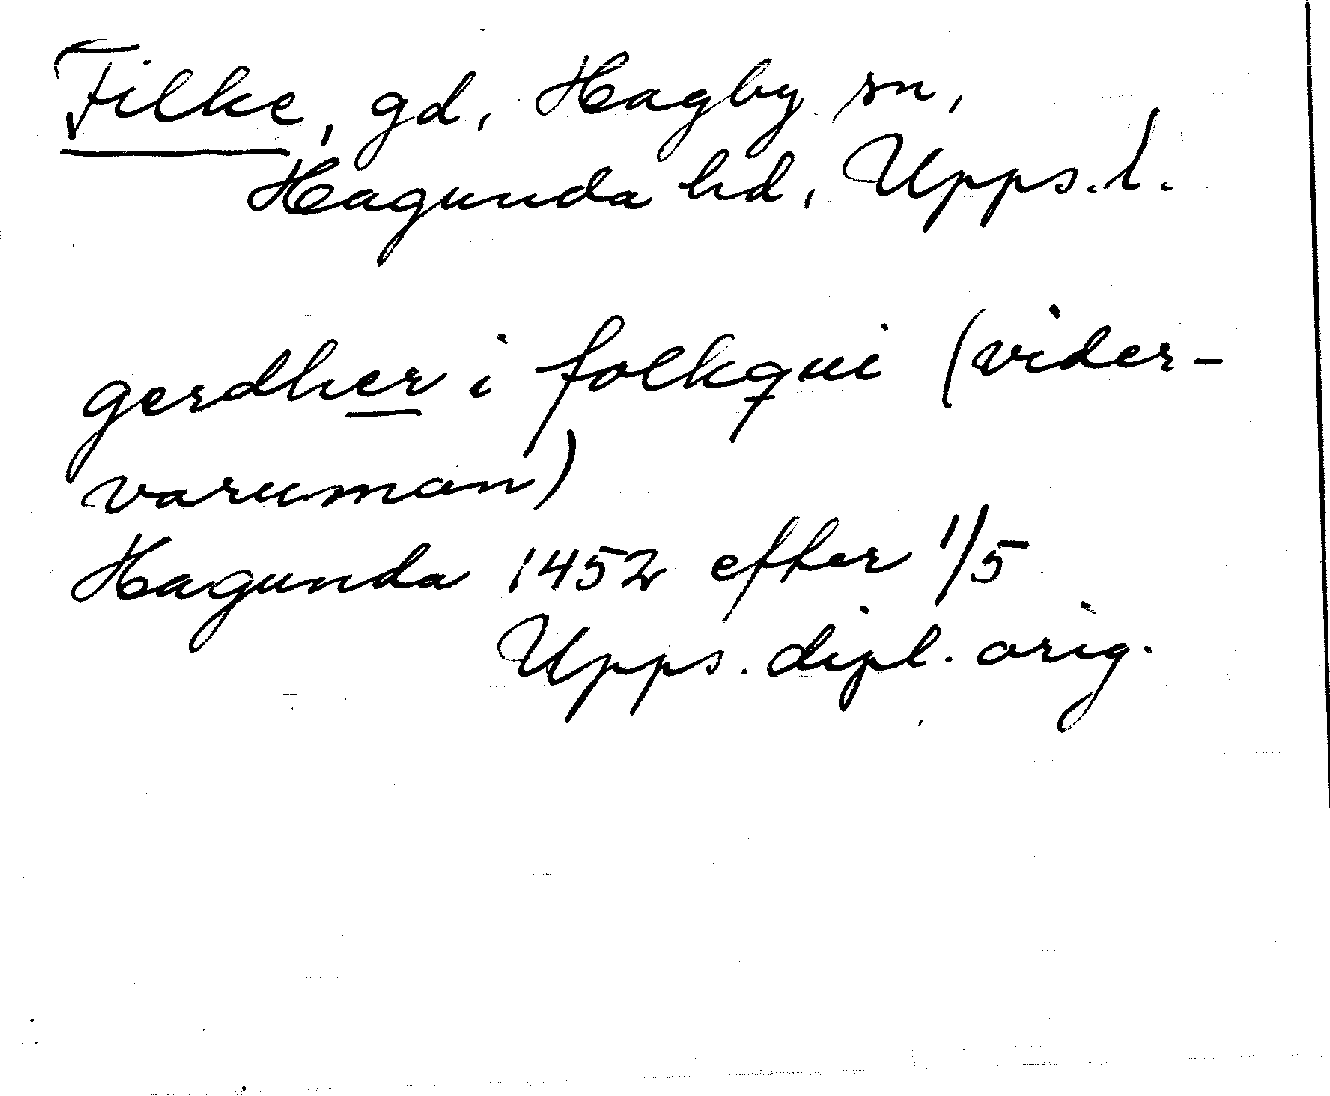 Filke, gd, Hagby sn,
Hagunda hd, Upps. l.
gerdher i folkqui (vider-
varuman)
Hagunda 1452 efter 1/5
Upps. dipl. orig.